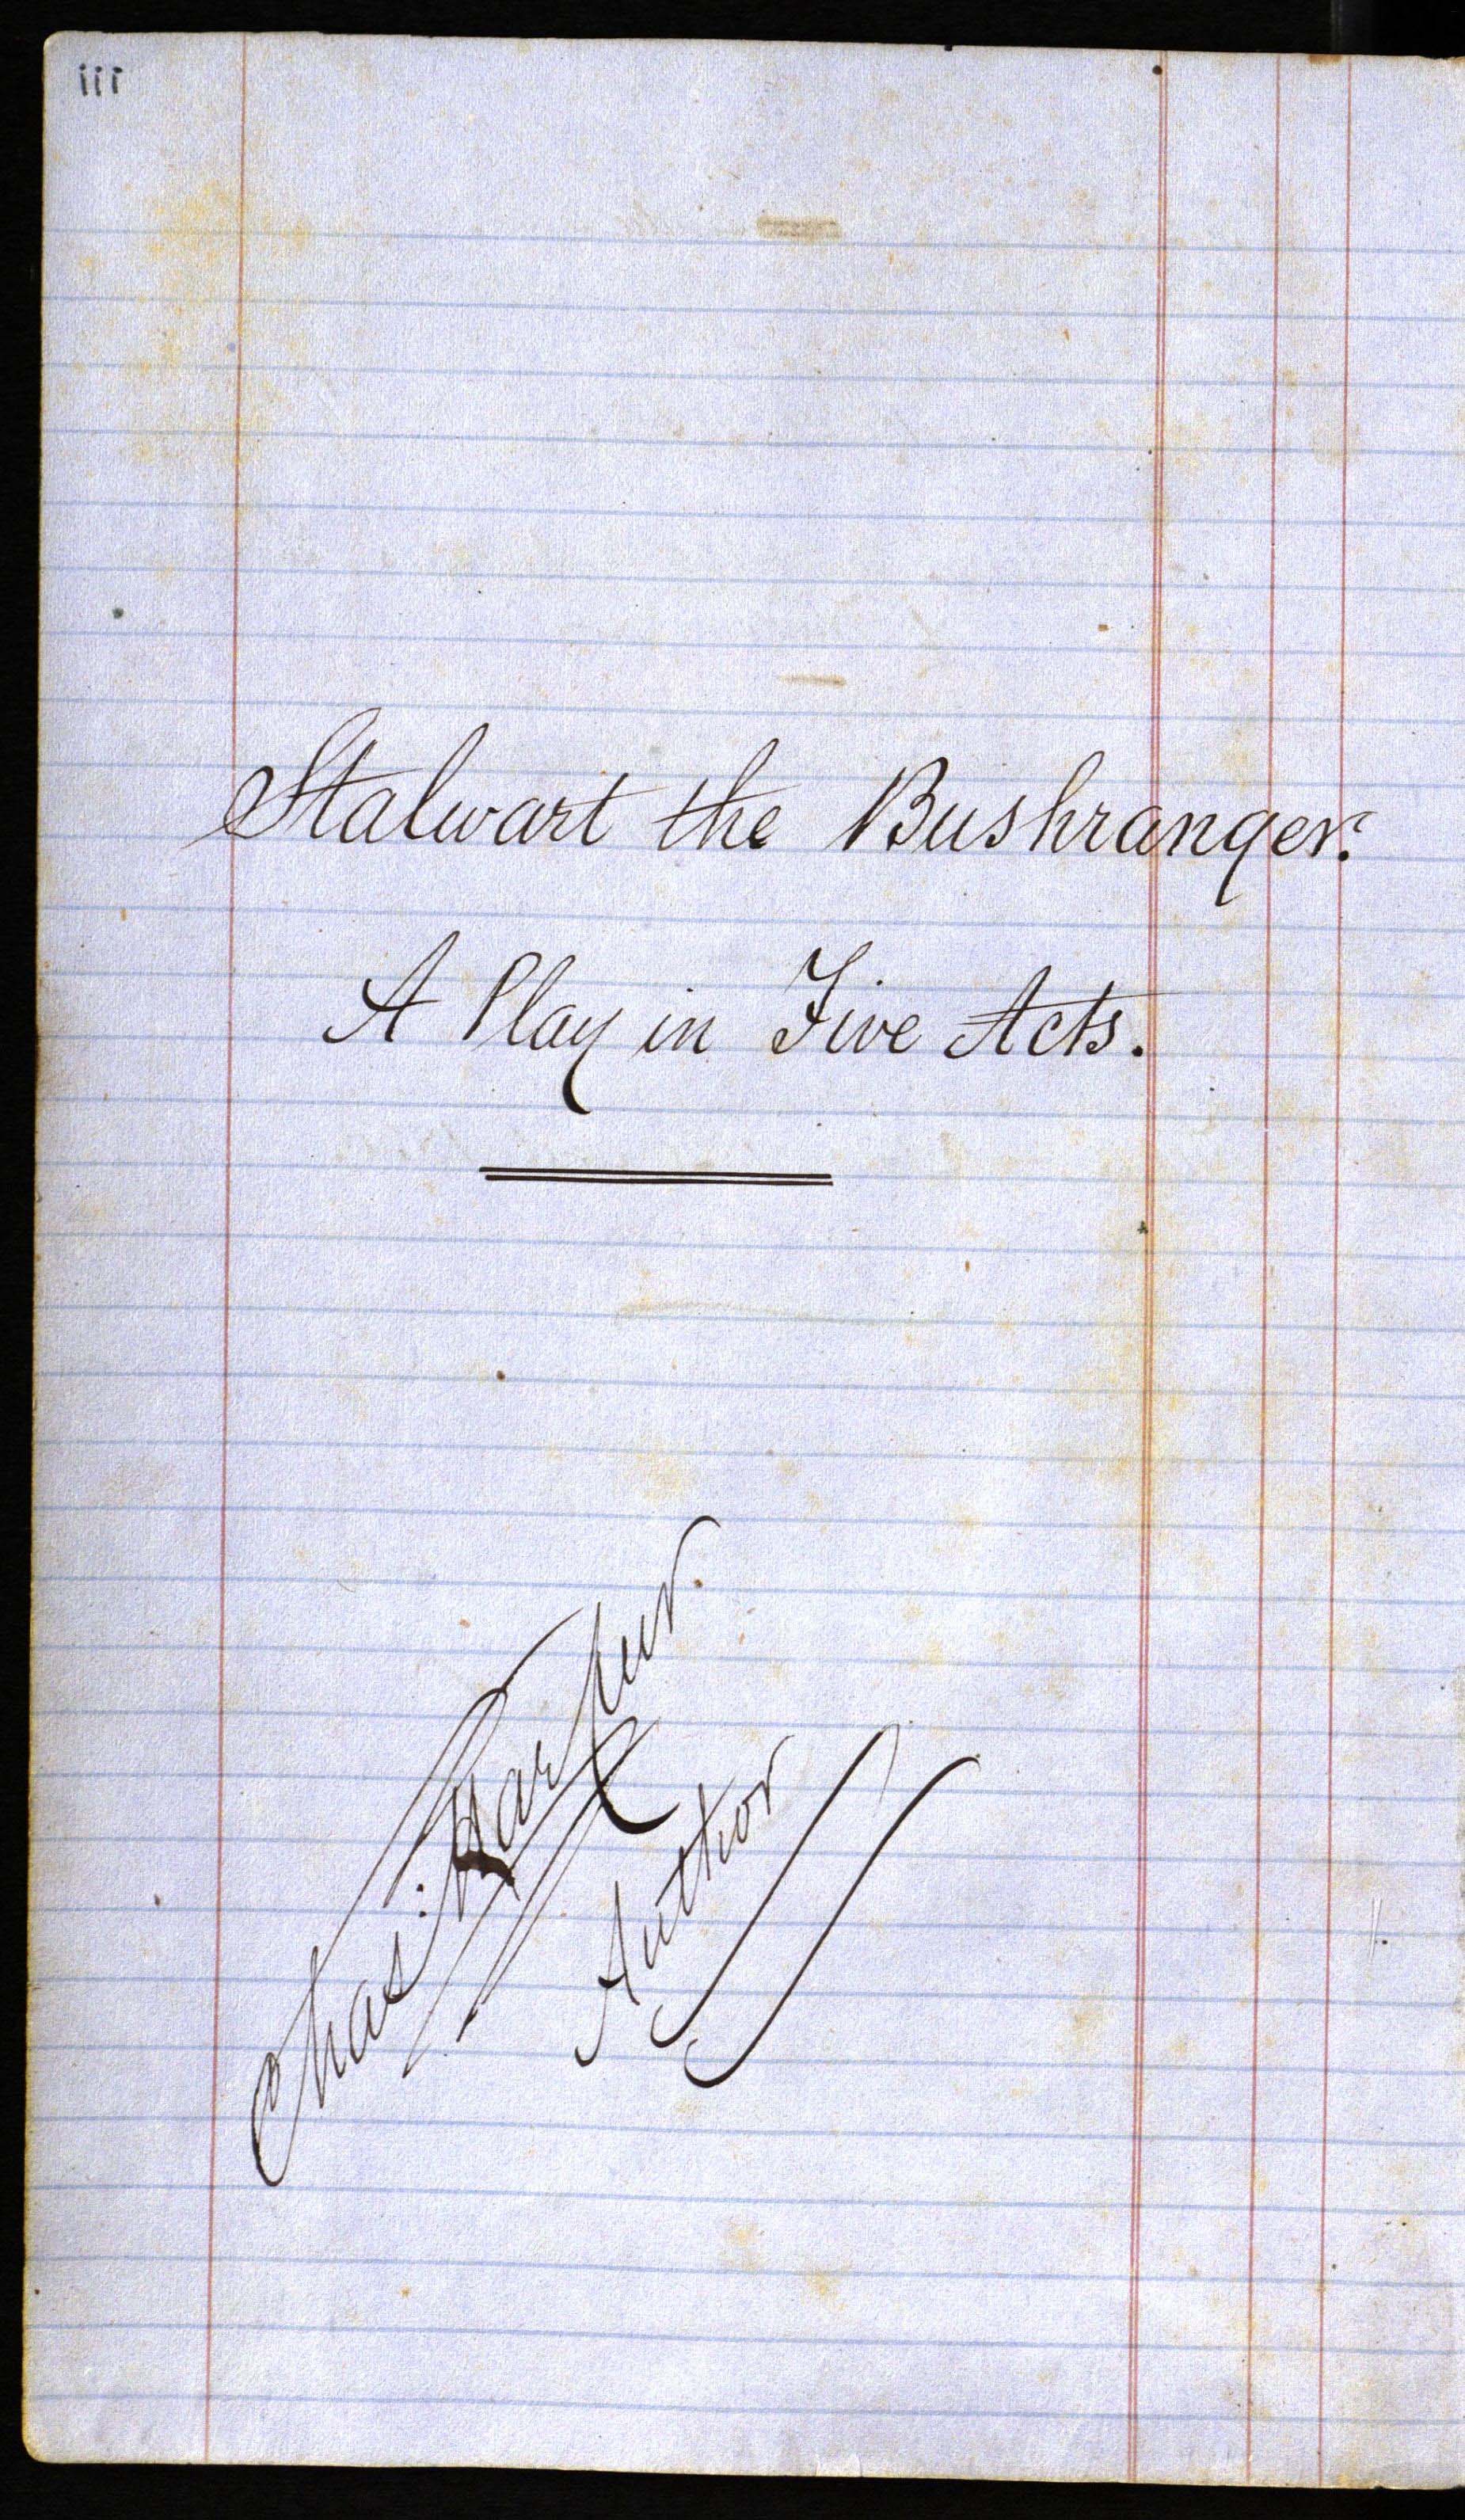 iii
Stalwart the Bushranger:
A Play in Five Acts.
Chas: Harpur.
Author